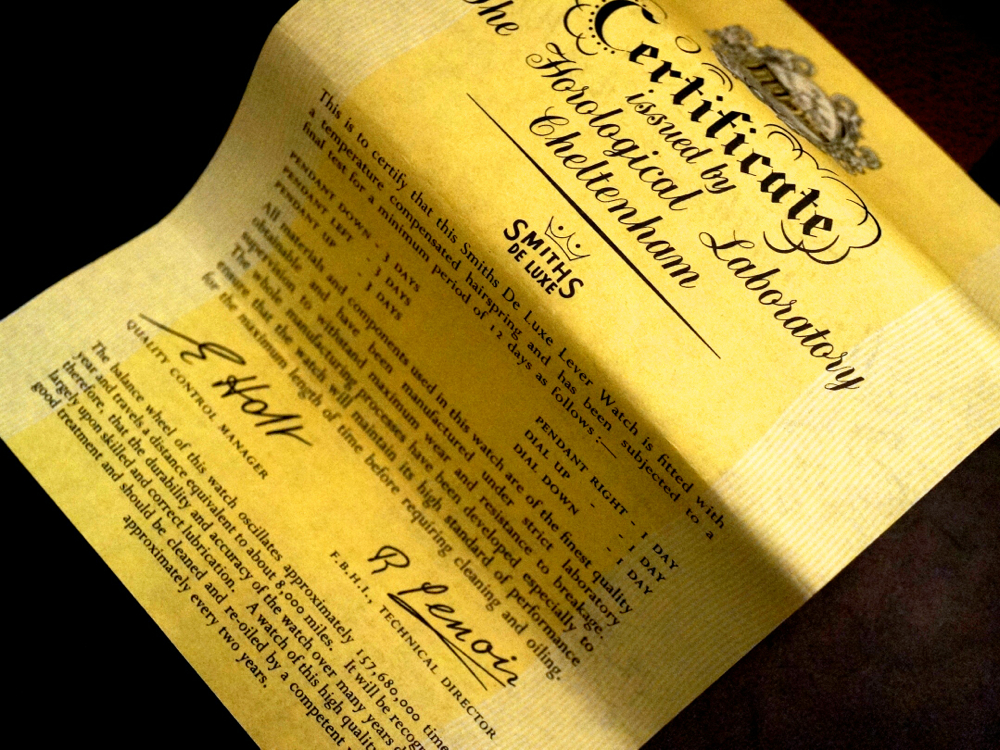 The Certificate
issued by
Horological Laboratory
Cheltenham
SMITHS
DE LUXE
This is to certify that this Smiths De Luxe Lever Watch is fitted with
a temperature compensated hairspring and has been subjected to a
final test for a minimum period of 12 days as follows :—
PENDANT DOWN - 3 DAYS PENDANT RIGHT - 1 DAY
PENDANT LEFT - 3 DAYS DIAL UP - - 1 DAY
PENDANT UP - 3 DAYS DIAL DOWN - - 1 DAY
All materials and components used in this watch are of the finest quality
obtainable and have been manufactured under strict laboratory
supervision to withstand maximum wear and resistance to breakage.
The whole of the manufacturing processes have been developed especially to
ensure that the watch will maintain its high standard of performance
for the maximum length of time before requiring cleaning and oiling.
E Holt R Lenoir
QUALITY CONTROL MANAGER F.B.H.I., TECHNICAL DIRECTOR
The balance wheel of this watch oscillates approximately 157,680,000 time
year and travels a distance equivalent to about 8,000 miles. It will be recog
therefore, that the durability and accuracy of the watch over many years d
largely upon skilled and correct lubrication. A watch of this high quality
good treatment and should be cleaned and re-oiled by a competent
approximately every two years.